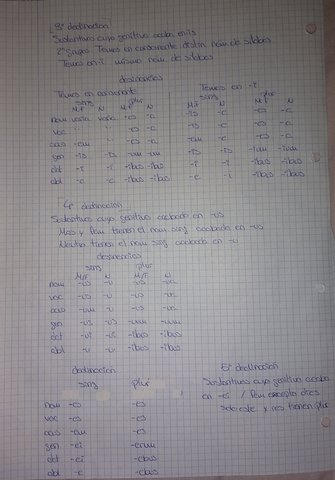 3ª declinación
Sustantivos cuyo genitivo acaba en is
2 grupos: Temas en consonante distin. núm de sílabas
Temas en -i mismo núm. de sílabas
desinencias
Temas en consonante Temas en -i
sing plur sing plur
M/F N M/F N M/F N M/F N
nom varia varia -es -a -is -e -es
voc
acu -em
gen -is -is -um -um -is -is -ium -ium
dat -i -i -ibus -ibus -i -i -ibus -ibus
abl -e -e -ibus -ibus -e -i -ibus -ibus
4ª declinación
Sustantivos cuyo genitivo acabado en -us
Mas y fem tienen el nom. sing acabado en -us
Neutro tienen el nom sing acabado en -u
desinencias
sing plur
M/F N M/F N
nom -us -u -us -ua
voc -us -u -us -ua
acu -um -u -us -ua
gen -us -us -uum -uum
dat -ui -ibus -ibus
abl -u -u -ibus -ibus
declinación 5ª declinación
sing plur Sustantivos cuyo genitivo acaba
en -ei / Fem excepto dies
nom -es -es solo este y res tienen plur
voc -es -es
acu -em -es
gen -ei -erum
dat -ei -ebus
abl -e -ebus